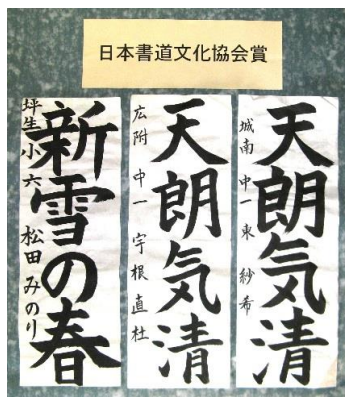 日本書道文化協会賞
天朗気清
城南 中一 東 紗希
天朗気清
広附 中一 宇根直杜
新雪の春
坪生小 六 松田みのり